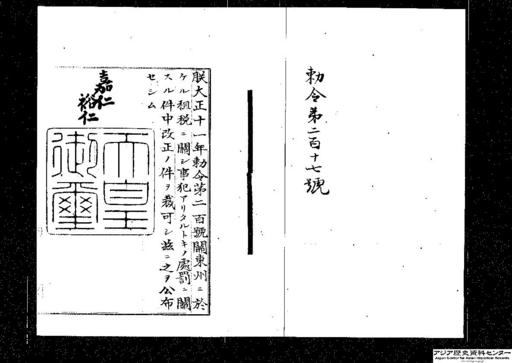 勅令第二百十七號
朕大正十一年勅令第二百號關東州ニ於
ケル租税ニ關シ事犯アリタルトキノ處罰ニ關
スル件中改正ノ件ヲ裁可シ玆ニ之ヲ公布
セシム
嘉仁
裕仁
天皇
御璽
アジア歴史資料センター
Japan Center for Asian Historical Records